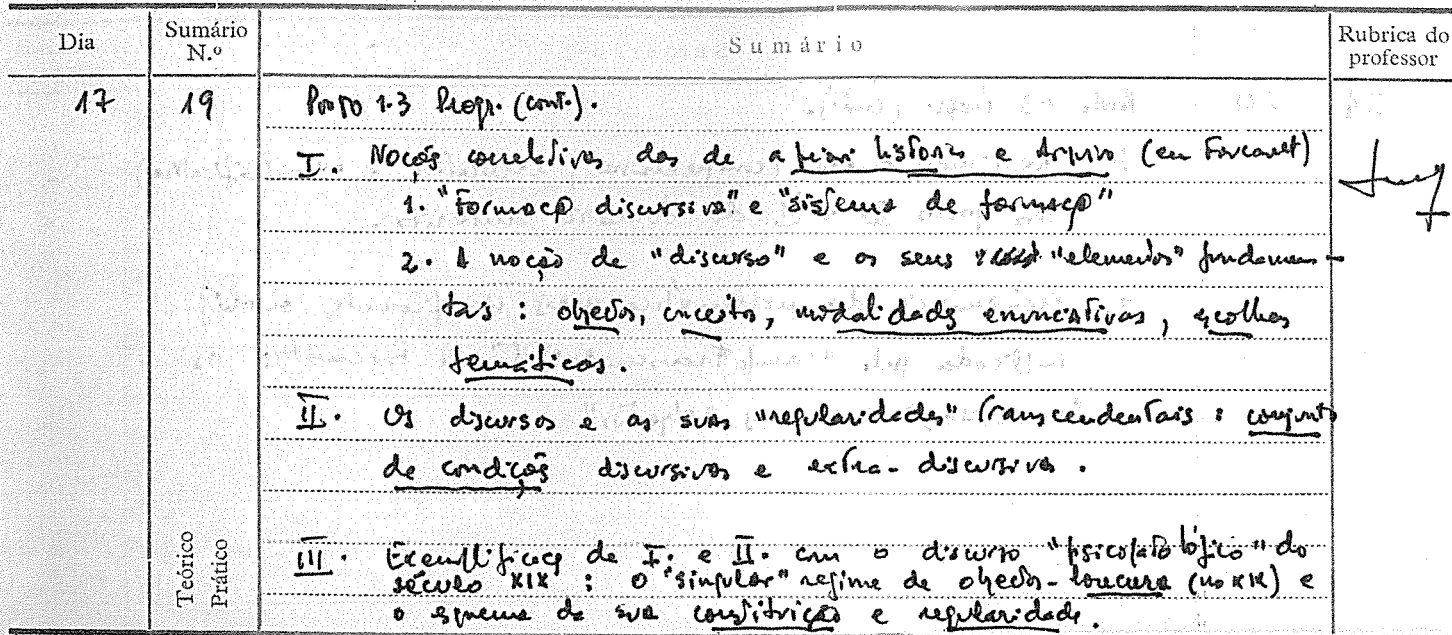 Dia Sumário N.º Sumário Rubrica do professor
17 19 Ponto 1.3 Progr. (cont.).
I. Noções correlativas das de a priori histórico e Arquivo (em Foucault)
1. "Formação discursiva" e "sistema de formação"
2. A noção de "discurso" e os seus "elementos" fundamen-
tais : objectos, conceitos, modalidades enunciativas, escolhas
temáticas.
II. Os discursos e as suas "regularidades" transcendentais : conjunto
de condições discursivas e extra-discursivas.
Teórico
Prático
III. Exemplificação de I. e II. com o discurso "psicopatológico" do
século XIX : o "singular" regime de objecto-loucura (no XIX) e
o esquema da sua constituição e regularidade.